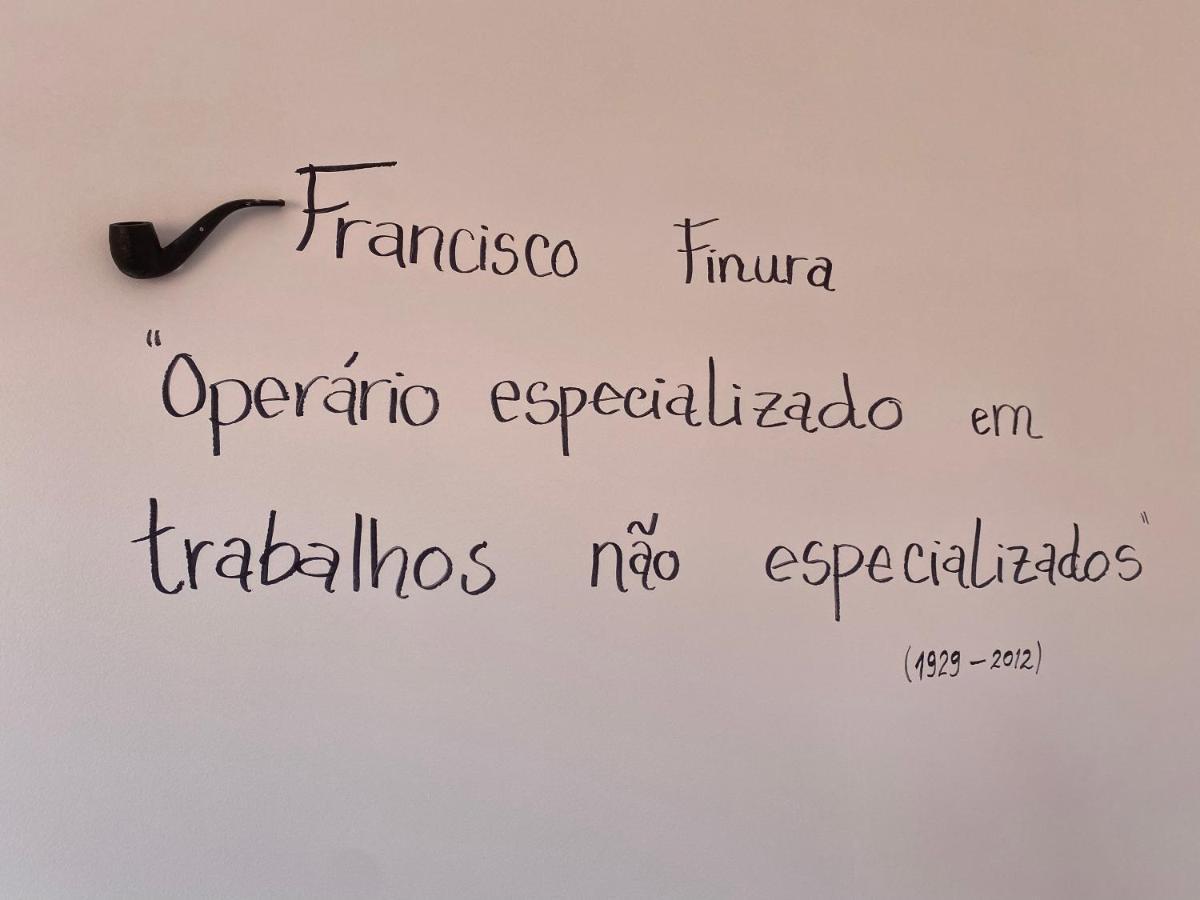 Francisco Finura
"Operário especializado em
trabalhos não especializados"
(1929 - 2012)